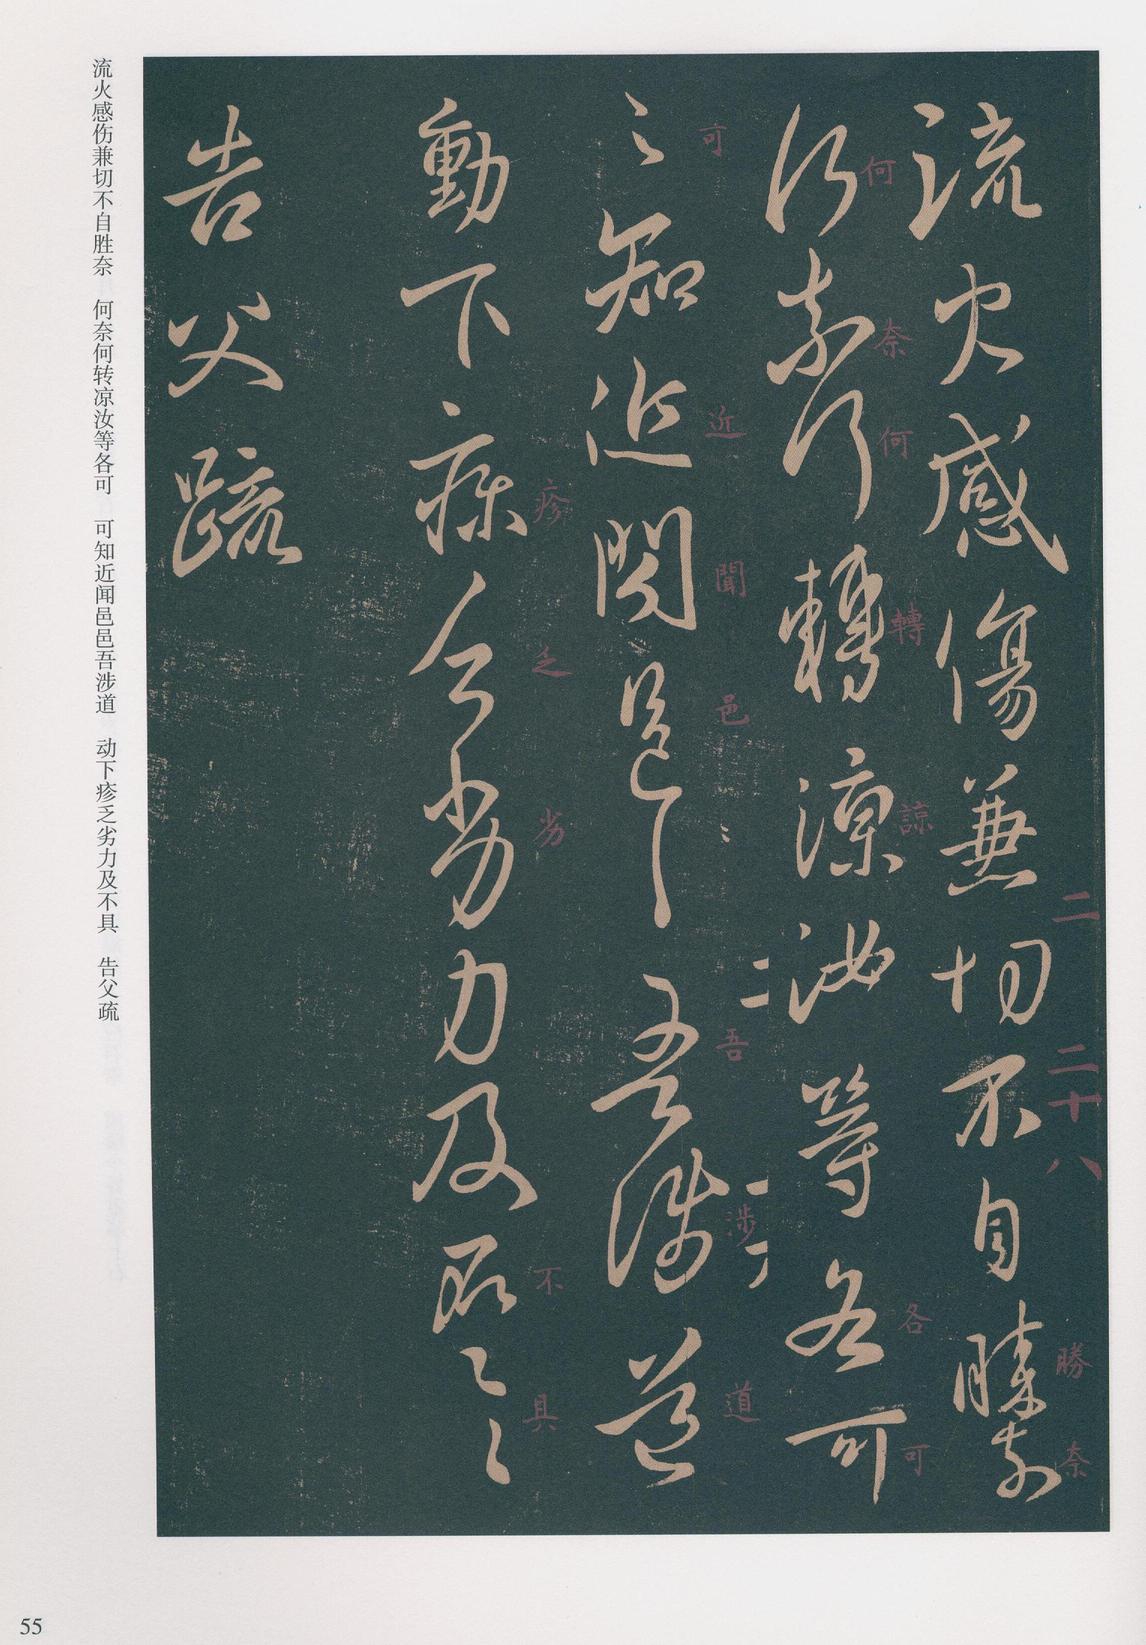 流火感傷兼切不自勝奈
何奈何轉涼汝等各可
〻知近聞邑〻吾涉道
動下疹乏劣力及不〻具〻
告父疏
二
二十八
勝
奈
何
奈
何
轉
諒
各
可
可
近
聞
邑
吾
涉
道
疹
乏
劣
不
具
流火感伤兼切不自胜奈 何奈何转凉汝等各可 可知近闻邑邑吾涉道 动下疹乏劣力及不具 告父疏
55